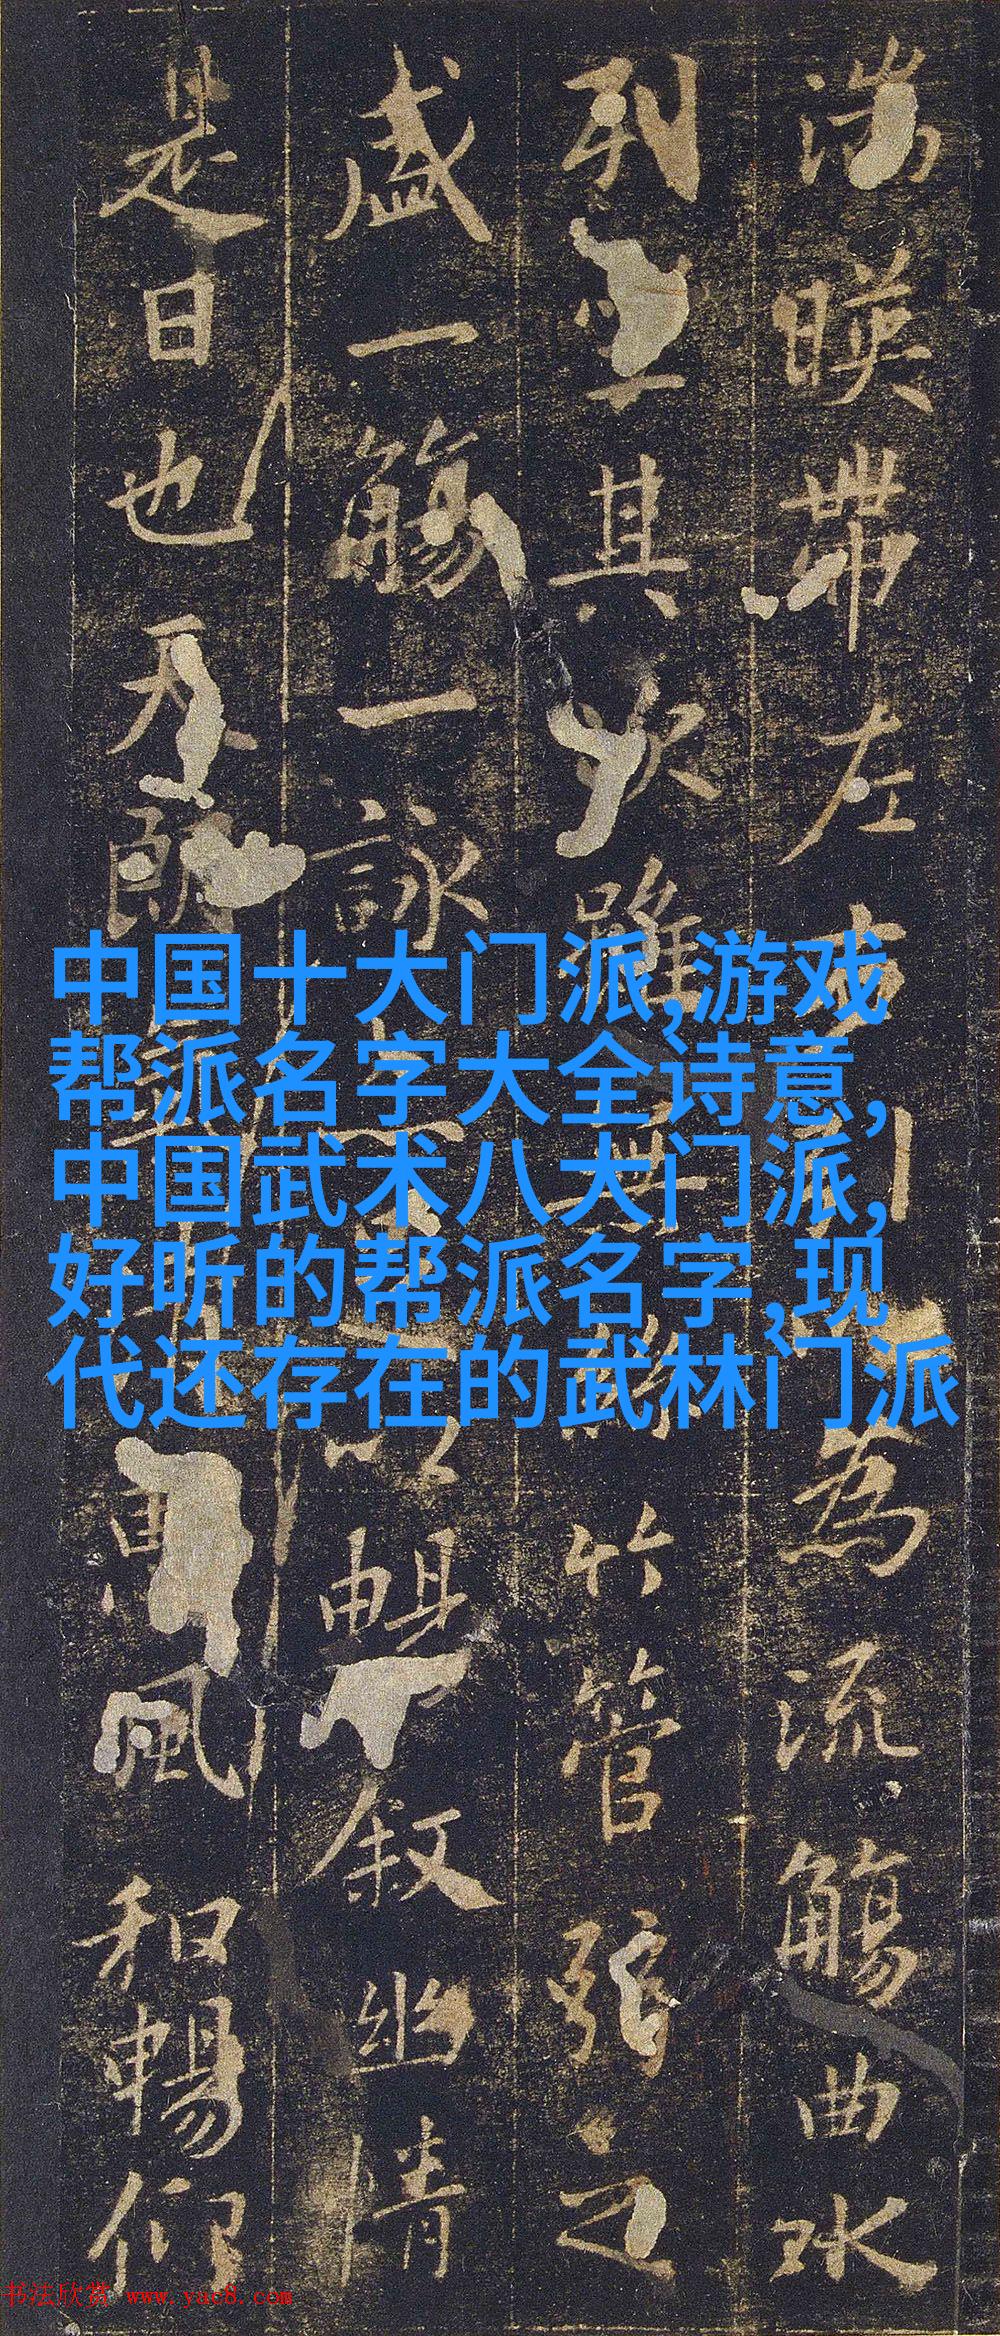 湍暎帶左右為流觴曲水
列坐其次雖無絲竹管弦之
盛一觴一詠以暢敘幽情
是日也天朗風和暢仰
中国十大门派,游戏
帮派名字大全诗意,
中国武术八大门派,
好听的帮派名字,现
代还存在的武林门派
书法欣赏 www.yac8.com